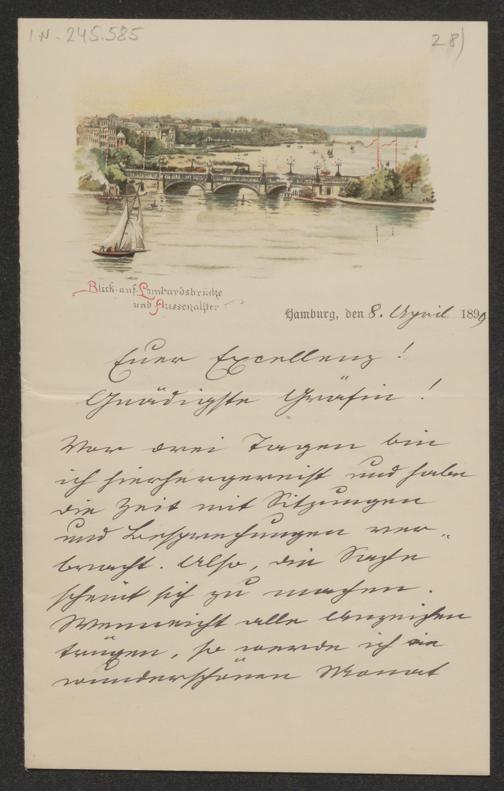 I.N. 245.585
28)
Blick auf Lombardsbrücke
und Aussenalster
Hamburg, den 8. April 1899
Euer Excellenz!
Gnädigste Gräfin!
Vor drei Tagen bin
ich hierhergereist und habe
die Zeit mit Sitzungen
und Besprechungen ver-
bracht. Also, die Sache
scheint sich zu machen.
Wenn nicht alle Anzeichen
trügen, so werde ich im
wunderschönen Monat